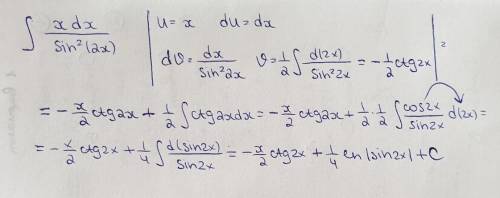 ∫ x dx / sin²(2x) | u = x du = dx
dv = dx / sin²2x v = 1/2 ∫ d(2x) / sin²2x = -1/2 ctg2x | =
= -x/2 ctg2x + 1/2 ∫ ctg2x dx = -x/2 ctg2x + 1/2 · 1/2 ∫ cos2x / sin2x d(2x) =
= -x/2 ctg2x + 1/4 ∫ d(sin2x) / sin2x = -x/2 ctg2x + 1/4 ln|sin2x| + C